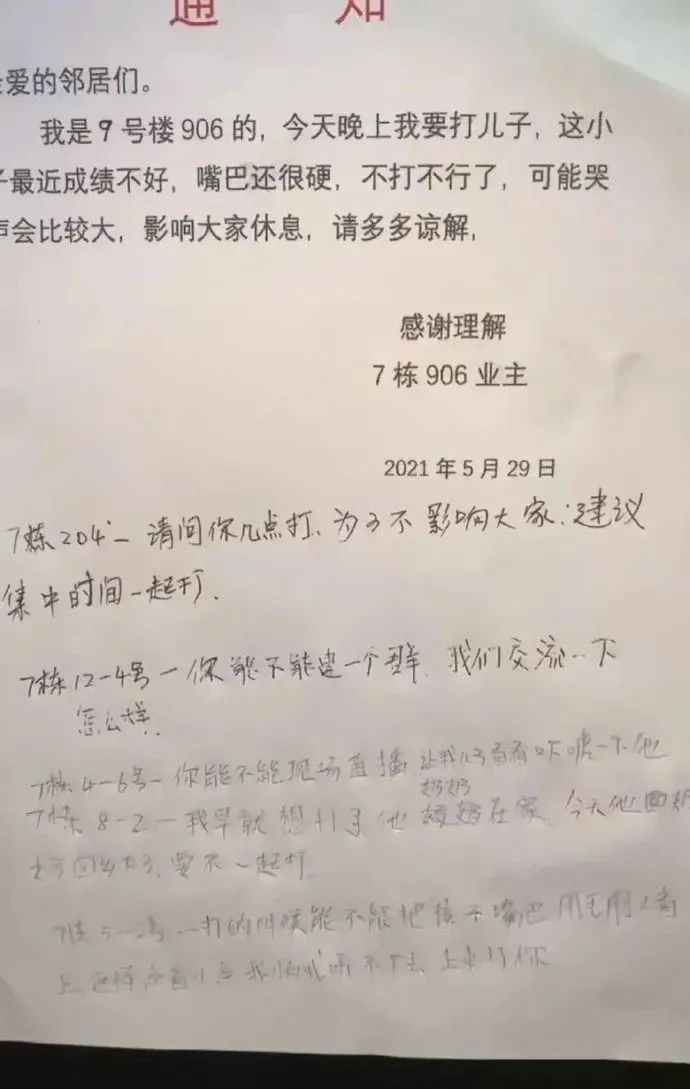 通 知
爱的邻居们。
我是9号楼906的，今天晚上我要打儿子，这小
子最近成绩不好，嘴巴还很硬，不打不行了，可能哭
声会比较大，影响大家休息，请多多谅解，
感谢理解
7栋906业主
2021年5月29日
7栋204一请问你几点打、为了不影响大家：建议
集中时间一起打.
7栋12-4号一你能不能建一个群，我们交流一下
怎么样.
7栋4-6号-你能不能现场直播 让我儿子看看吓唬一下他
奶奶
7栋8-2一我早就想打了他 在家，今天他
回乡下了，要不一起打.
一打的时候能不能把孩子嘴巴用毛巾
上 这样声音小点 我怕我听不下去 上来打你